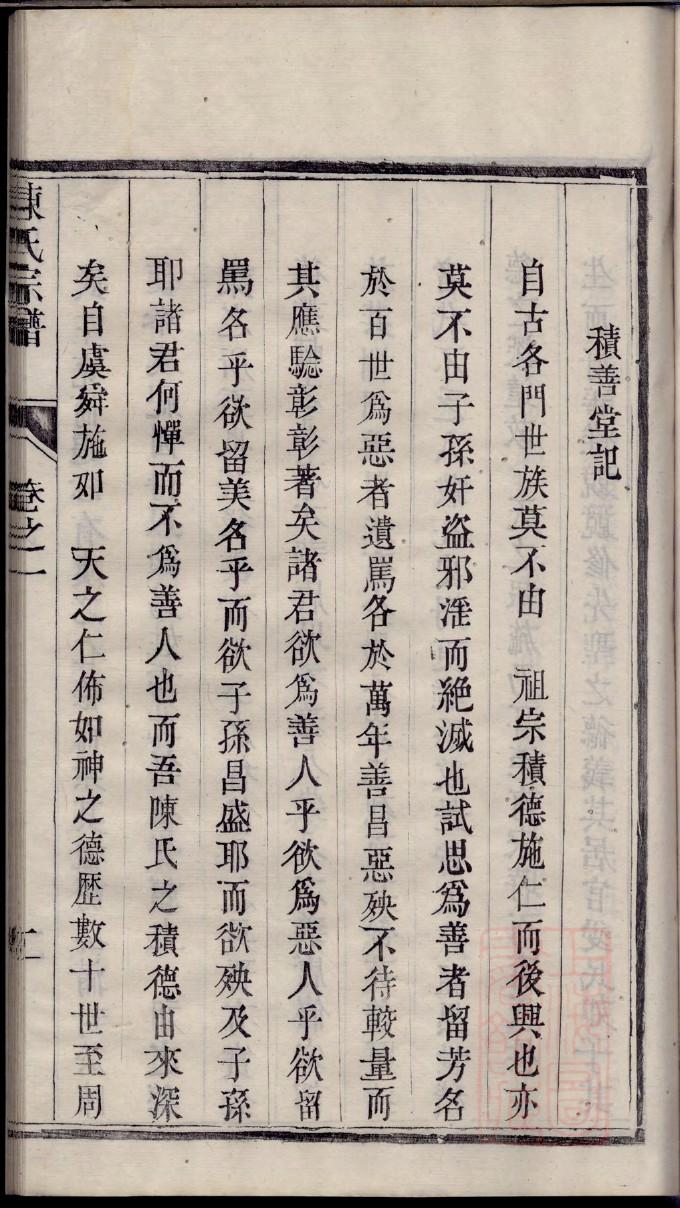 積善堂記
自古各門世族莫不由　祖宗積德施仁而後興也亦
莫不由子孫奸盜邪淫而絶滅也試思爲善者留芳名
於百世爲惡者遺罵各於萬年善昌惡殃不待較量而
其應驗彰彰著矣諸君欲爲善人乎欲爲惡人乎欲留
罵名乎欲留美名乎而欲子孫昌盛耶而欲殃及子孫
耶諸君何憚而不爲善人也而吾陳氏之積德由來深
矣自虞舜施如　天之仁佈如神之德歷數十世至周
陳氏宗譜　卷之一